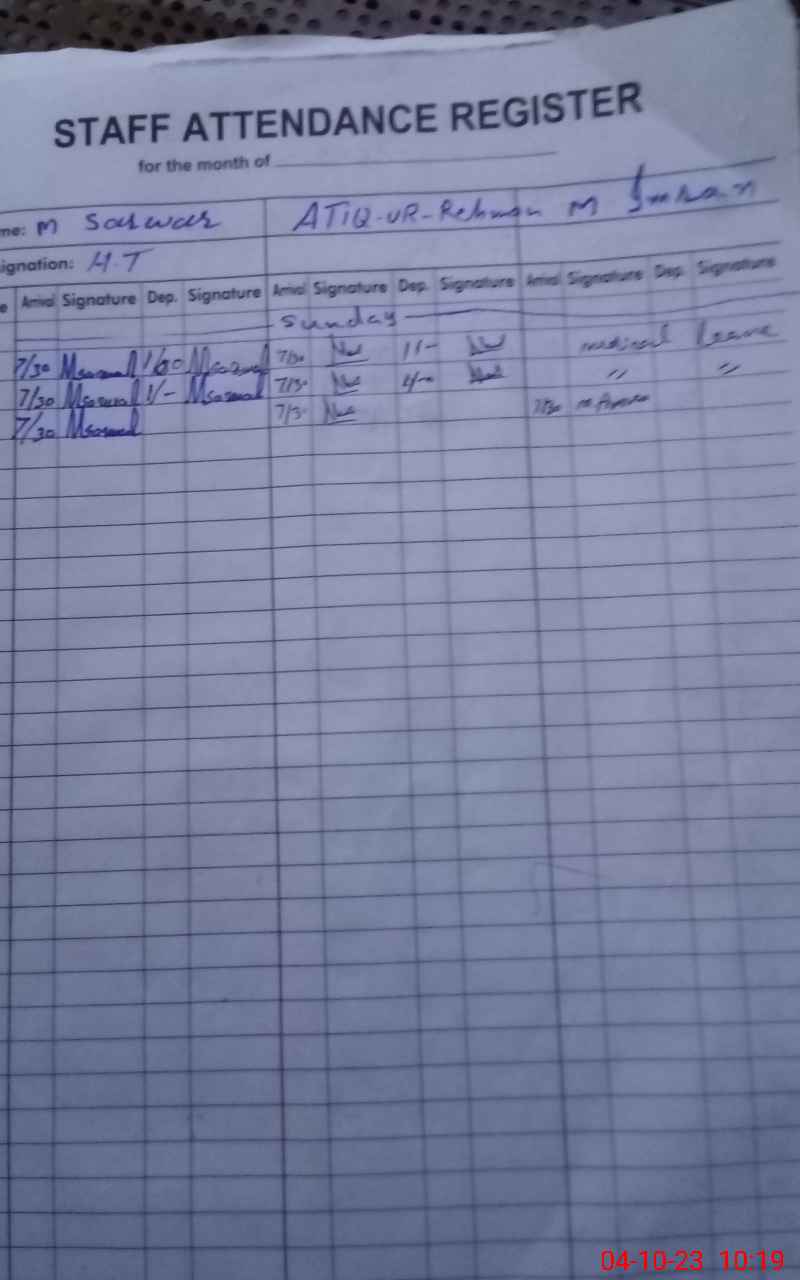 STAFF ATTENDANCE REGISTER
for the month of
me: M Sarwar ATIQ-UR-Rehman M Imran
ignation: H.T
e Arrival Signature Dep. Signature Arrival Signature Dep. Signature Arrival Signature Dep. Signature
Sunday
7/30 Msarwar 1/30 Msarwar 7/30 medical leave
7/30 Msarwar 1/- Msarwar 7/30 〃 〃
7/30 Msarwar 7/30 7/30
04-10-23 10:19